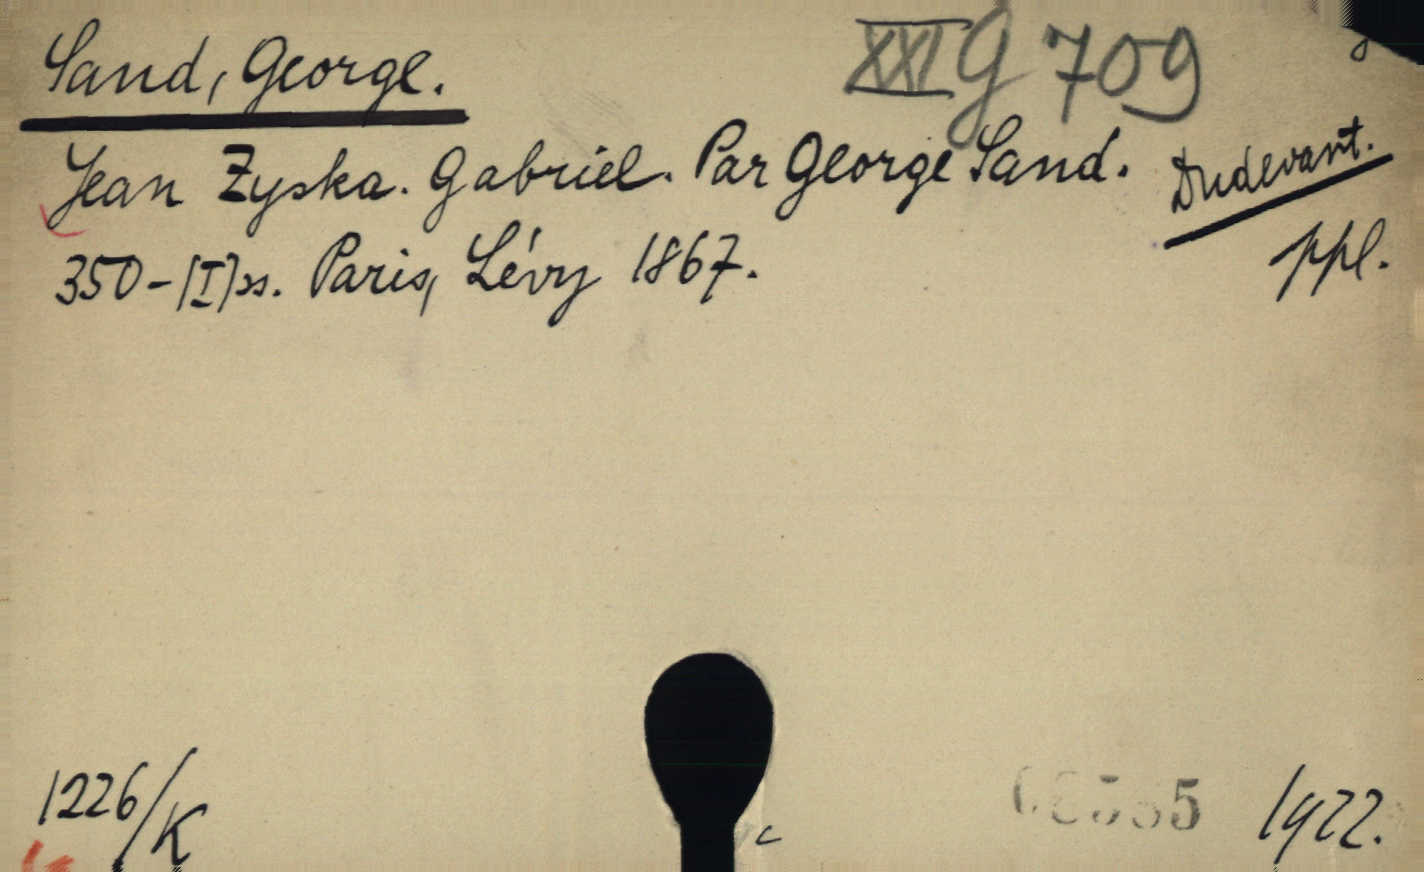 Sand, George.
XXI G 709
Jean Zyska. Gabriel. Par George Sand.
Dudevant.
350-[I] ss. Paris, Lévy 1867.
ppl.
1226/K
1922.